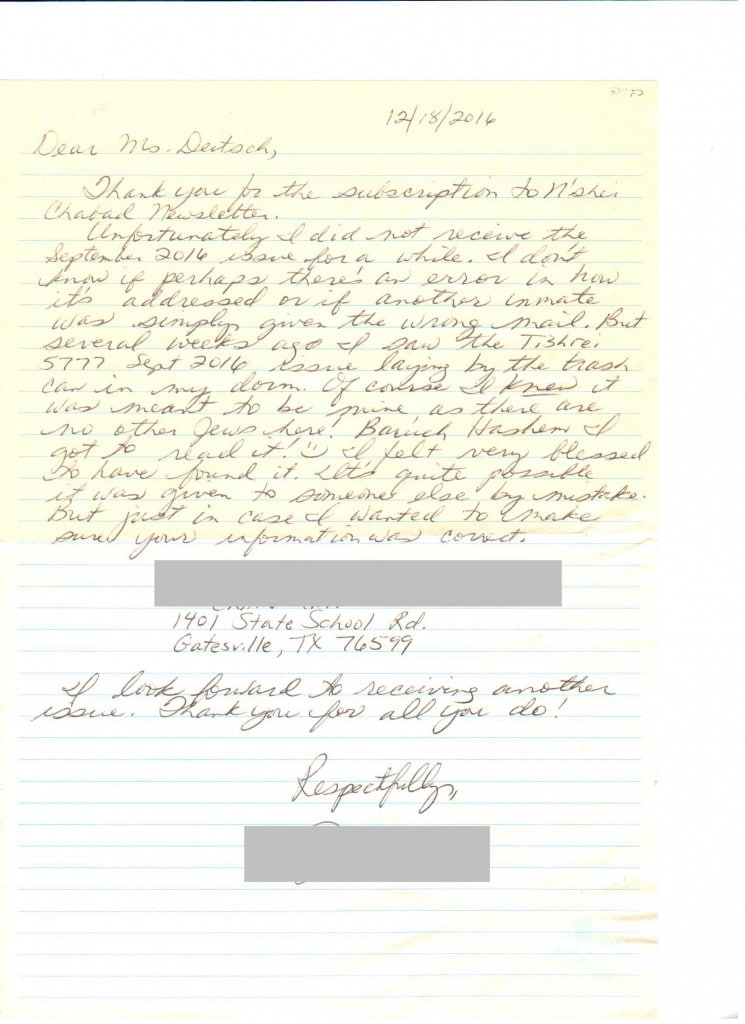 12/18/2016
Dear Ms. Deitsch,
Thank you for the subscription to N'shei
Chabad Newsletter.
Unfortunately I did not receive the
September 2016 issue for a while. I don't
know if perhaps there's an error in how
it's addressed or if another inmate
was simply given the wrong mail. But
several weeks ago I saw the Tishrei
5777 Sept 2016 issue laying by the trash
can in my dorm. Of course I knew it
was meant to be mine as there are
no other Jews here! Baruch Hashem I
got to read it! I felt very blessed
to have found it. It's quite possible
it was given to someone else by mistake.
But just in case I wanted to make
sure your information was correct.
1401 State School Rd.
Gatesville, TX 76599
I look forward to receiving another
issue. Thank you for all you do!
Respectfully,